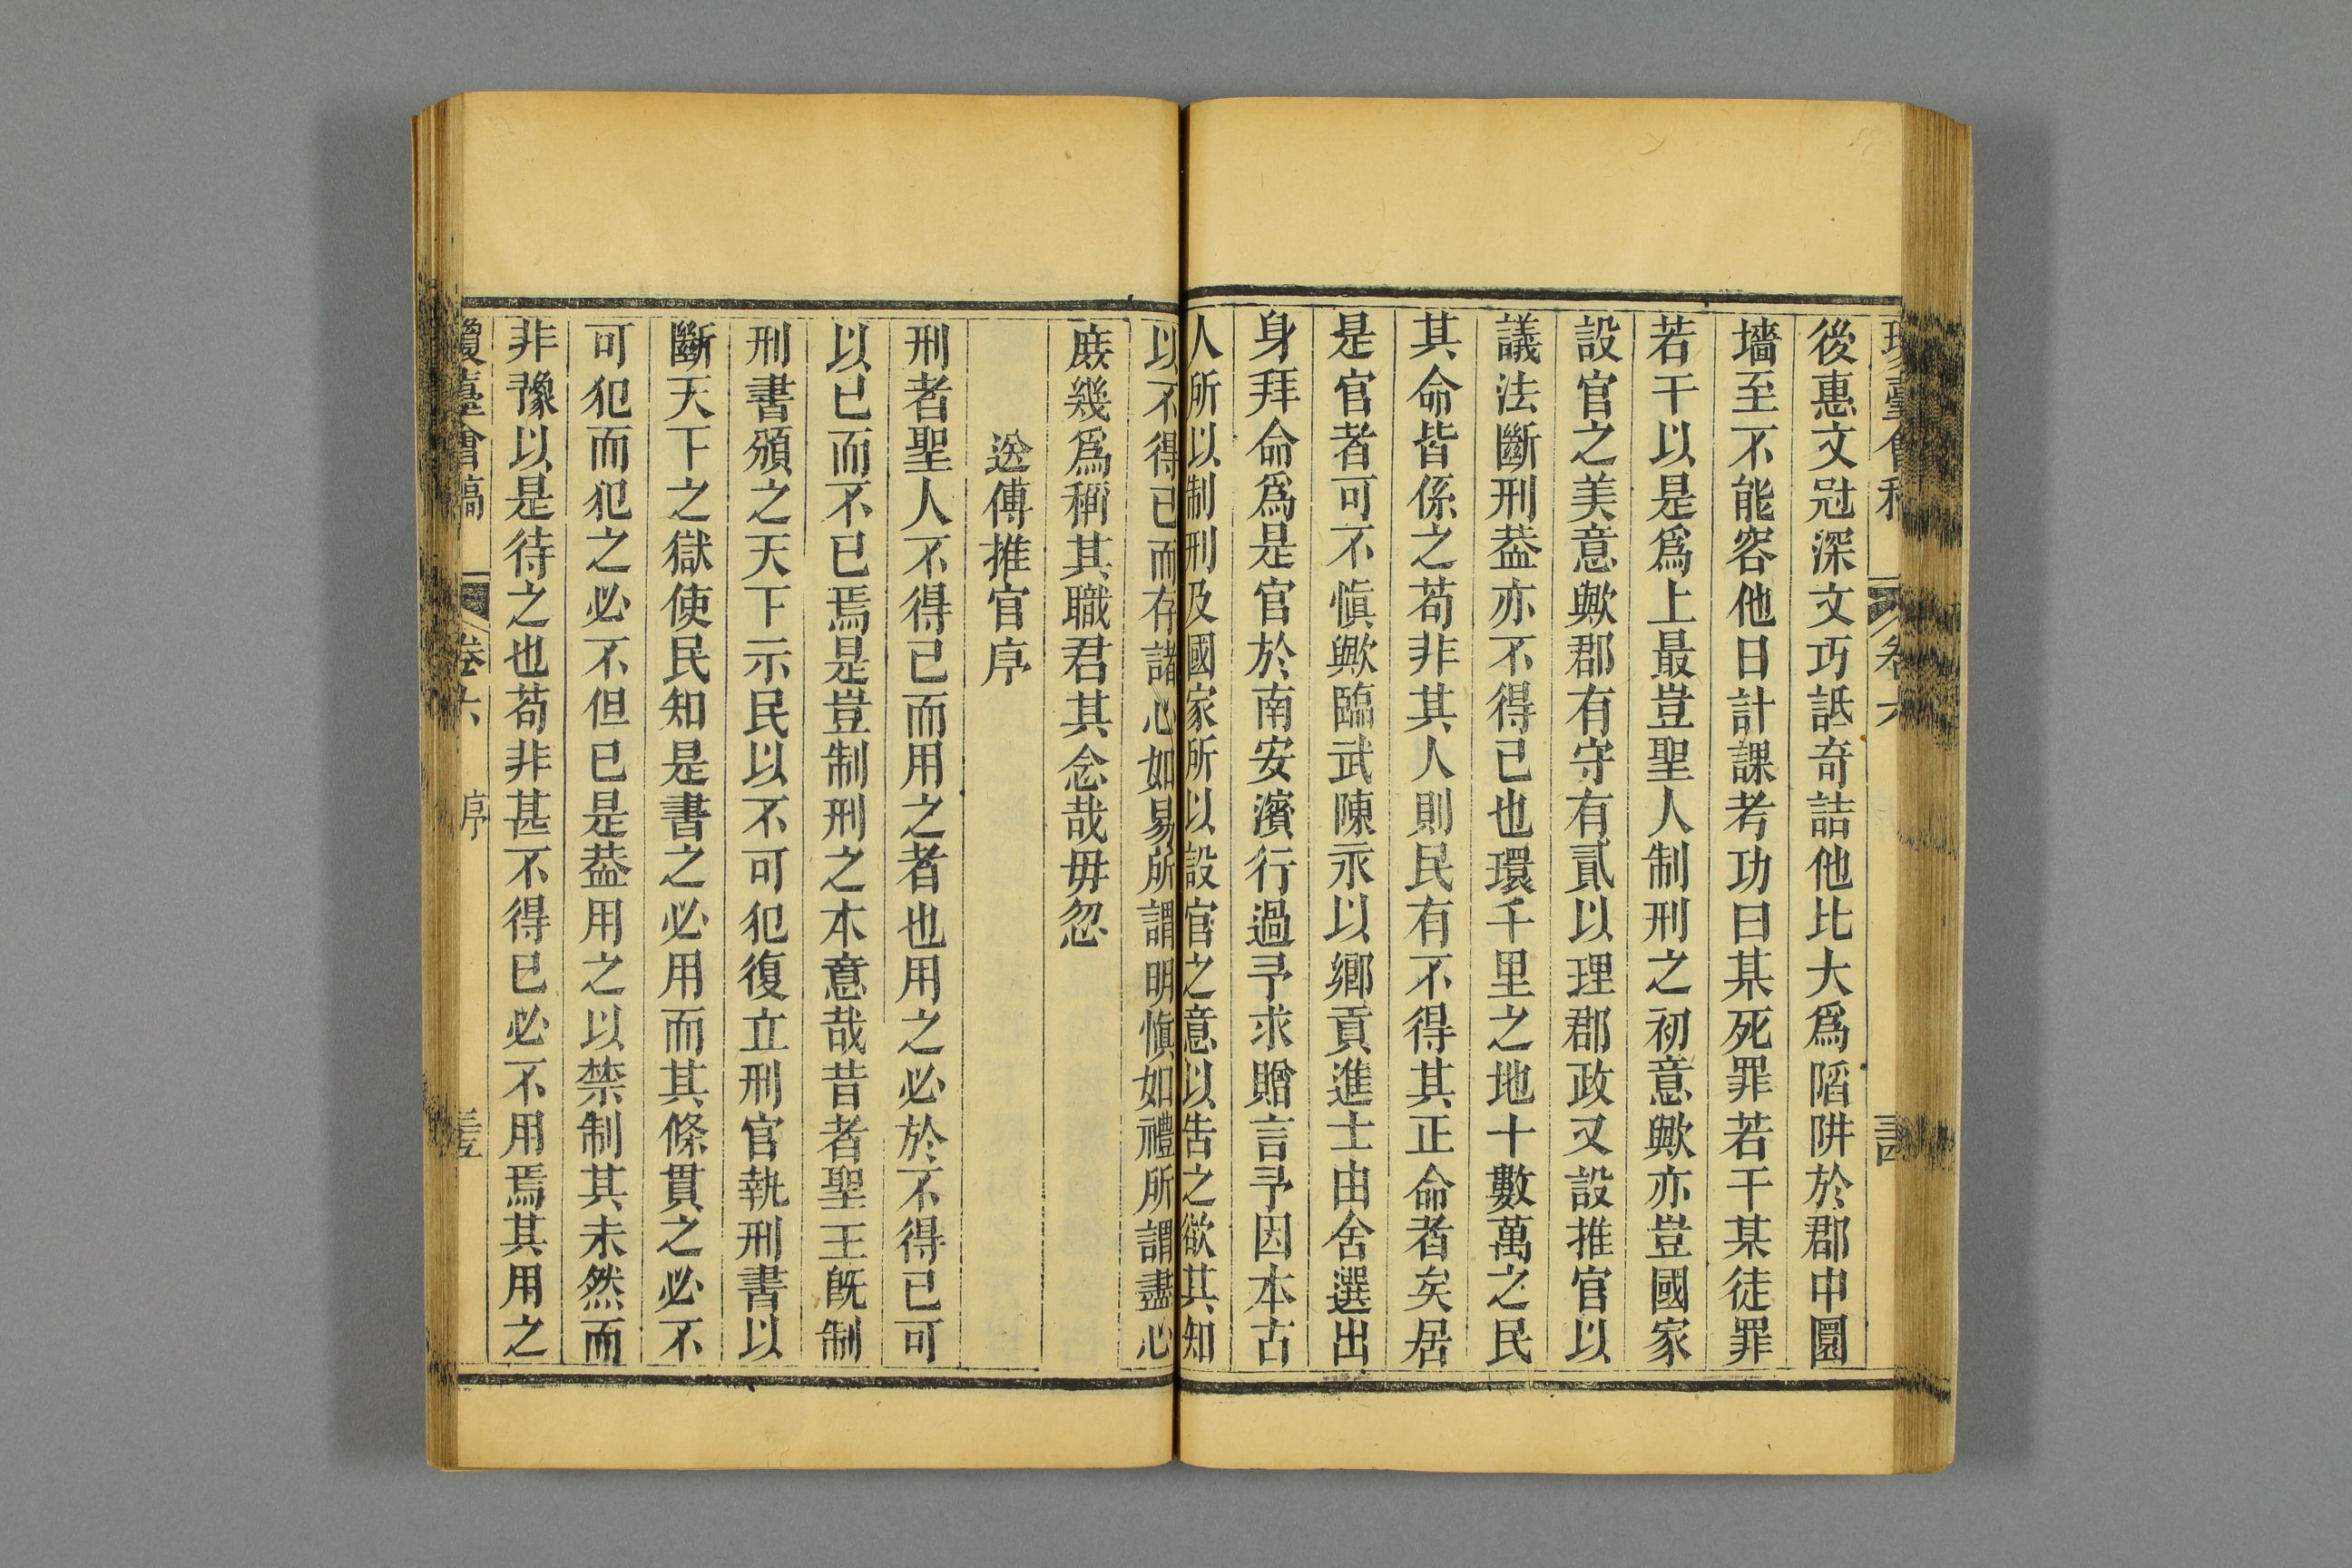 後惠文冠深文巧詆奇詰他比大爲䧟阱於郡中圜
墻至不能容他日計課考功曰某死罪若干某徒罪
若干以是爲上最豈聖人制刑之初意歟亦豈國家
設官之美意歟郡有守有貳以理郡政又設推官以
議法斷刑葢亦不得已也環千里之地十數萬之民
其命皆係之苟非其人則民有不得其正命者矣居
是官者可不慎歟臨武陳永以鄉貢進士由舍選出
身拜命爲是官於南安濱行過予求贈言予因本古
人所以制刑及國家所以設官之意以告之欲其知
以不得已而存諸心如易所謂明慎如禮所謂盡心
庻幾爲稱其職君其念哉毋忽
送傅推官序
刑者聖人不得已而用之者也用之必於不得已可
以已而不已焉是豈制刑之本意哉昔者聖王旣制
刑書頒之天下示民以不可犯復立刑官執刑書以
斷天下之獄使民知是書之必用而其條貫之必不
可犯而犯之必不但已是葢用之以禁制其未然而
非豫以是待之也苟非甚不得已必不用焉其用之
瓊臺會稿 卷六 序